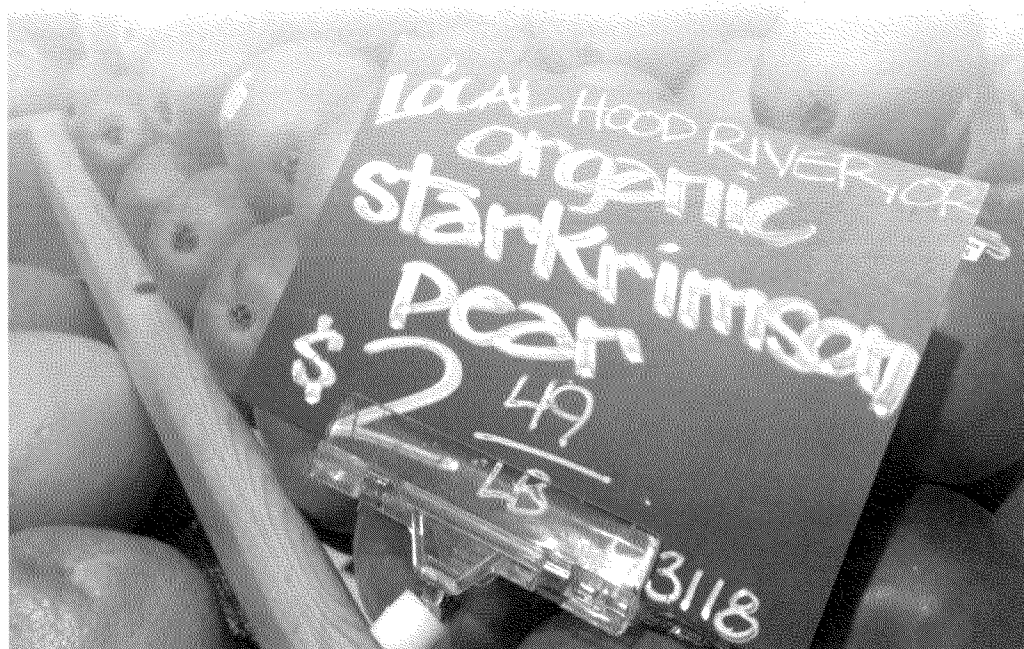 LOCAL HOOD RIVER, OR
organic
starkrimson
pear
$2 49
LB
93118